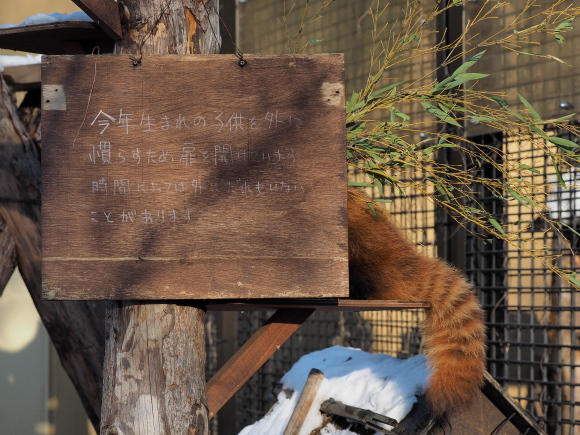 今年生まれの子供を外に
慣らすため扉を開けています
時間によっては外にだれもいない
ことがあります